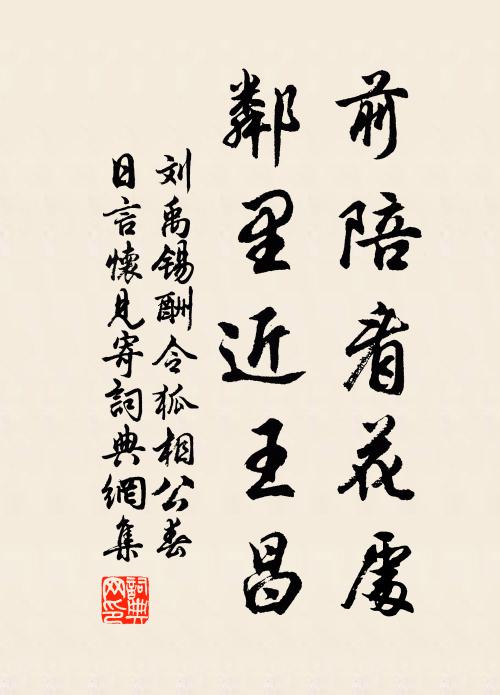 前陪看花處
鄰里近王昌
刘禹锡酬令狐相公春
日言懷見寄詞典網集
詞典
网印